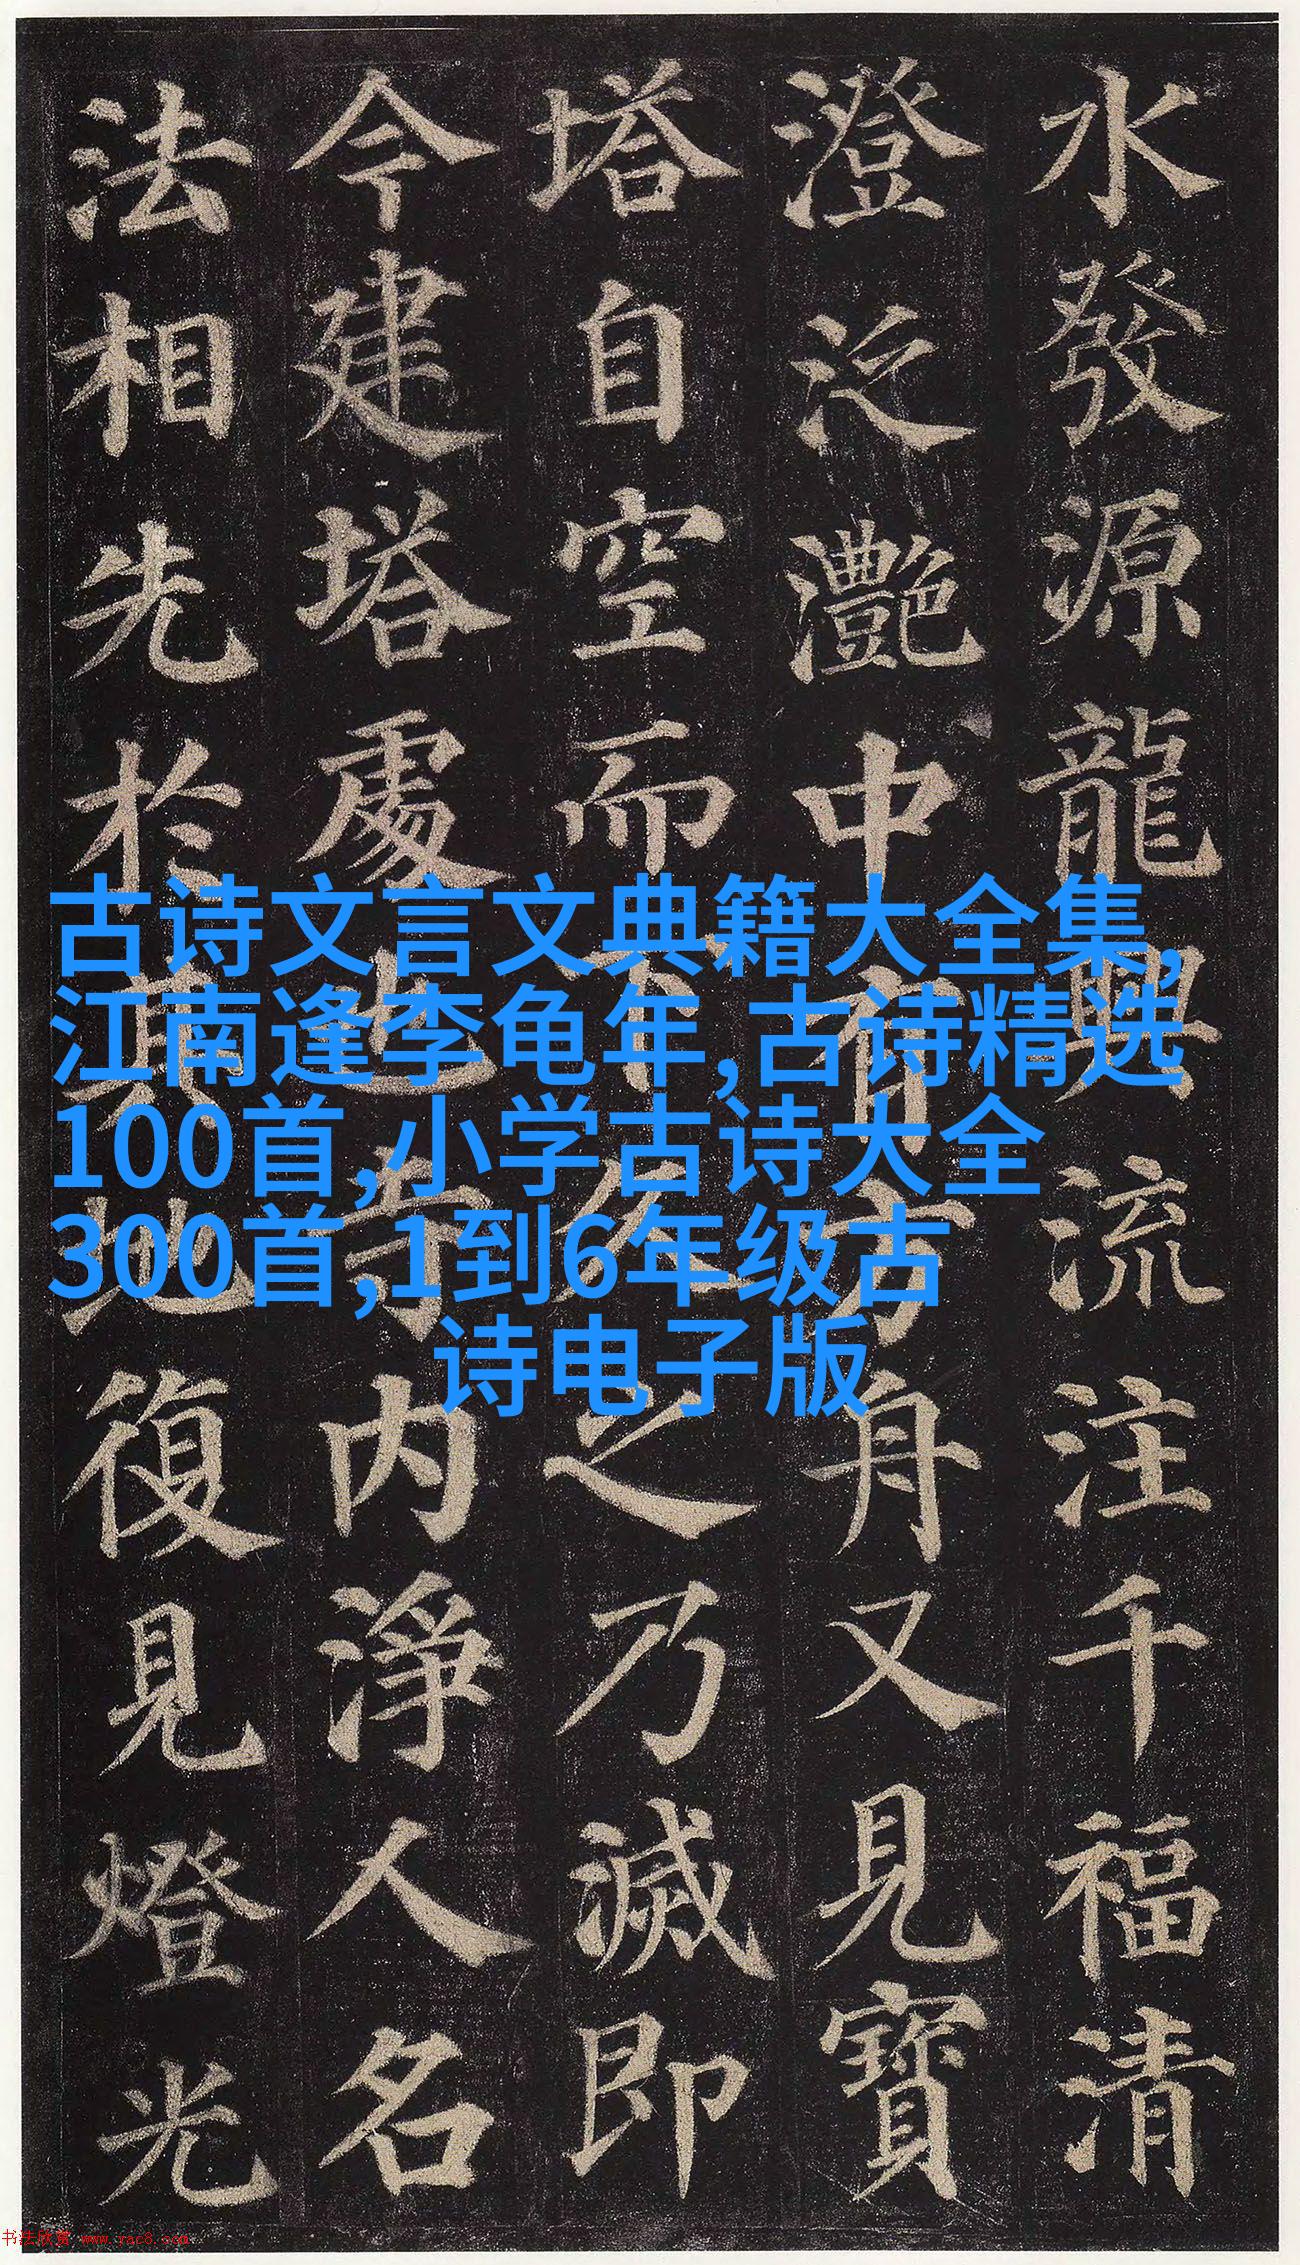 水發源龍興流注千福清
澄泛灩中有方舟又見寶
塔自空而下久之乃滅即
今建塔處也寺內淨人名
法相先於其地復見燈光
古诗文言文典籍大全集,
江南逢李龟年,古诗精选
100首,小学古诗大全
300首,1到6年级古
诗电子版
书法欣赏 www.yac8.com